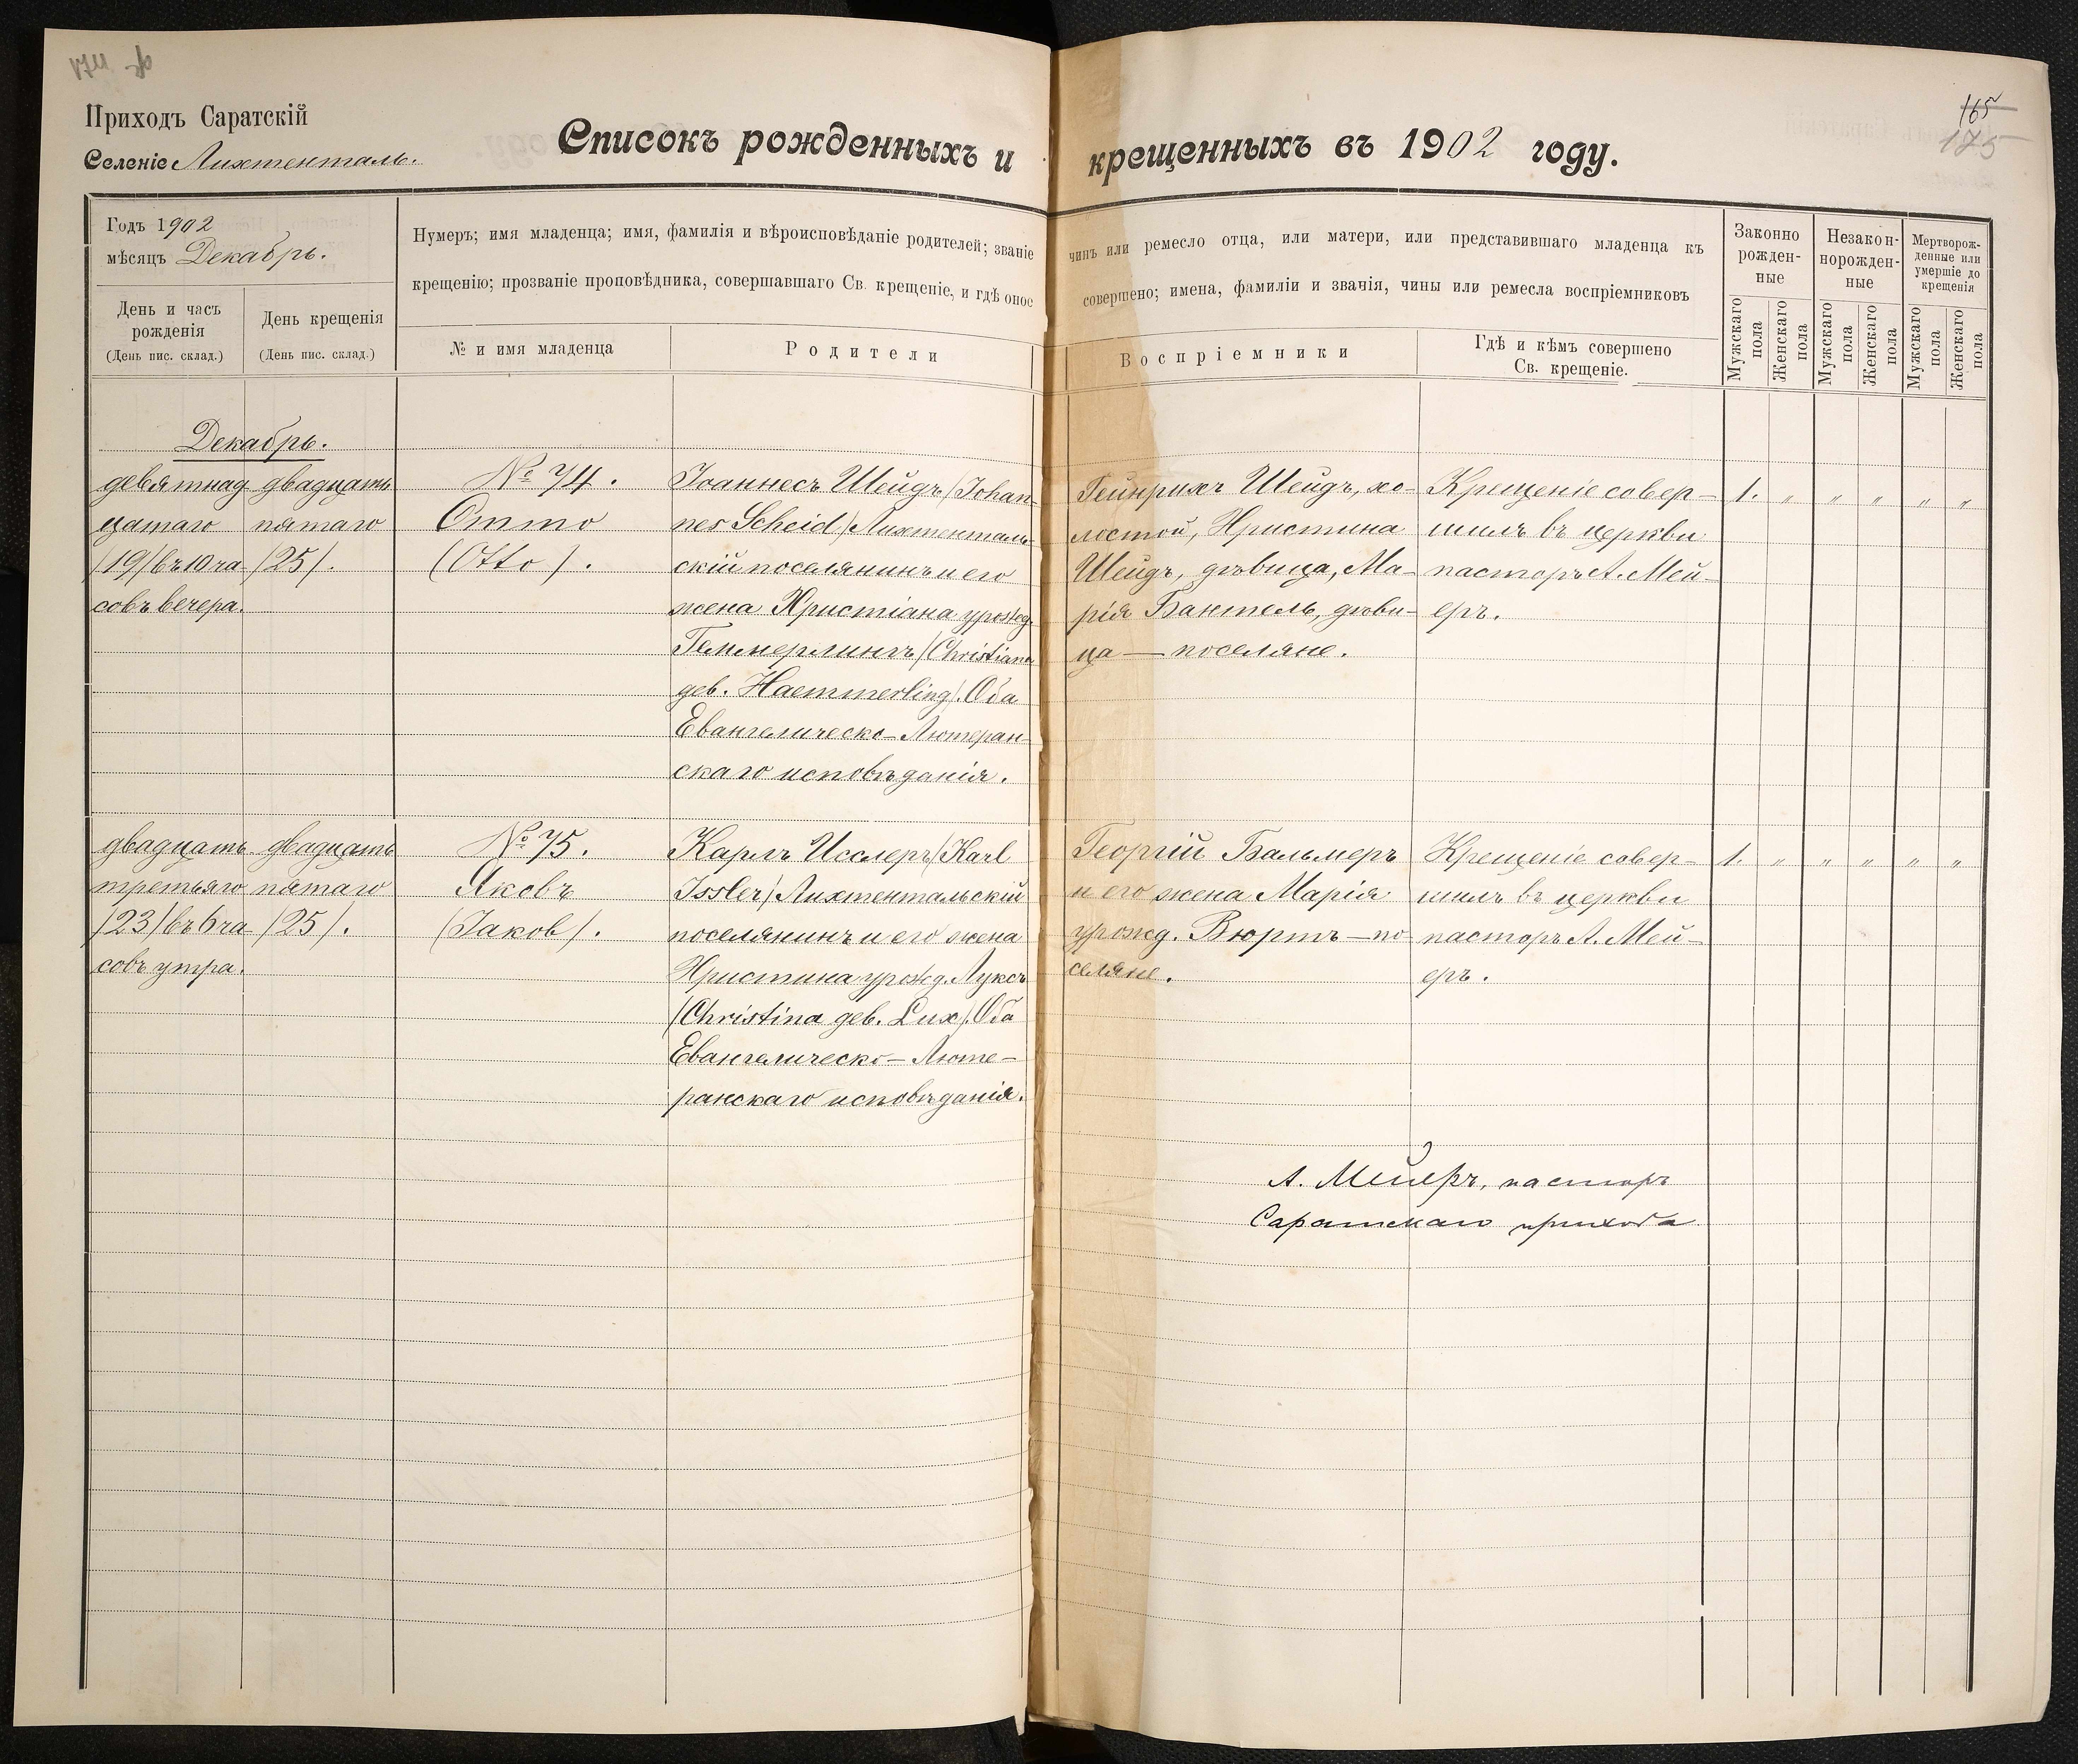 Приходъ Саратскій
Селеніе Лихтенталь.
Списокъ рожденныхъ и крещенныхъ въ 1902 году.
165
175
Годъ 1902
мѣсяцъ Декабрь.
День и часъ
рожденія
(День пис. склад.)
День крещенія
(День пис. склад.)
Нумеръ; имя младенца; имя, фамилія и вѣроисповѣданіе родителей; званіе
крещенію; прозваніе проповѣдника, совершавшаго Св. крещеніе, и гдѣ оное
№ и имя младенца
Родители
чинъ или ремесло отца, или матери, или представившаго младенца къ
совершено; имена, фамиліи и званія, чины или ремесла воспріемниковъ
Воспріемники
Гдѣ и кѣмъ совершено
Св. крещеніе.
Законно
рожден-
ные
Незакон-
норожден-
ные
Мертворож-
денные или
умершіе до
крещенія
Мужскаго
пола
Женскаго
пола
Мужскаго
пола
Женскаго
пола
Мужскаго
пола
Женскаго
пола
Декабрь.
девятнад
цатаго
/19/ въ 10 ча
совъ вечера.
двадцать
пятаго
/25/.
№ 74.
Отто
(Otto).
Іоаннесъ Шейдъ /Johan-
nes Scheid/ Лихтенталь-
скій поселянинъ и его
жена Христіана урожд.
Геммерлингъ /Christiana
геб. Haemmerling/. Оба
Евангелическо-Лютеран-
скаго исповѣданія.
Гейнрихъ Шейдъ, хо-
лостой, Христина
Шейдъ, дѣвица, Ма-
рія Бантель, дѣви-
ца — поселяне.
Крещеніе совер-
шилъ въ церкви
пасторъ А. Мей-
еръ.
1. „ „ „ „ „
двадцать
третьяго
/23/ въ 6 ча
совъ утра.
двадцать
пятаго
/25/.
№ 75.
Яковъ
(Jakob).
Карлъ Исслеръ /Karl
Issler/ Лихтентальскій
поселянинъ и его жена
Христина урожд. Луксъ
/Christina геб. Lux/. Оба
Евангелическо-Люте-
ранскаго исповѣданія.
Георгій Бальмеръ
и его жена Марія
урожд. Вюртъ — по
селяне.
Крещеніе совер-
шилъ въ церкви
пасторъ А. Мей-
еръ.
1. „ „ „ „ „
А. Мейеръ, пасторъ
Саратскаго прихода